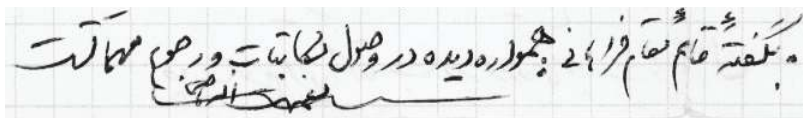 بگفتهٔ قائم مقام فراهانی همواره دیده در وصول مکاتبات و رجوع مهمات است